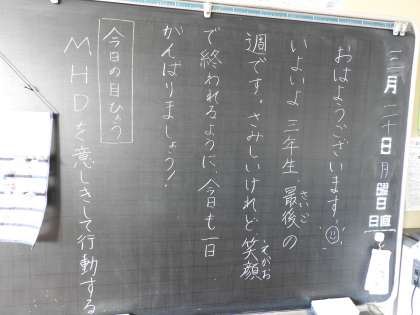 三月二十日月曜日
日直
おはようございます。
いよいよ三年生、最後の
さいご
週です。さみしいけれど笑顔
えがお
で終われるように、今日も一日
がんばりましょう!
今日の目ひょう
MHDを意しきして行動する